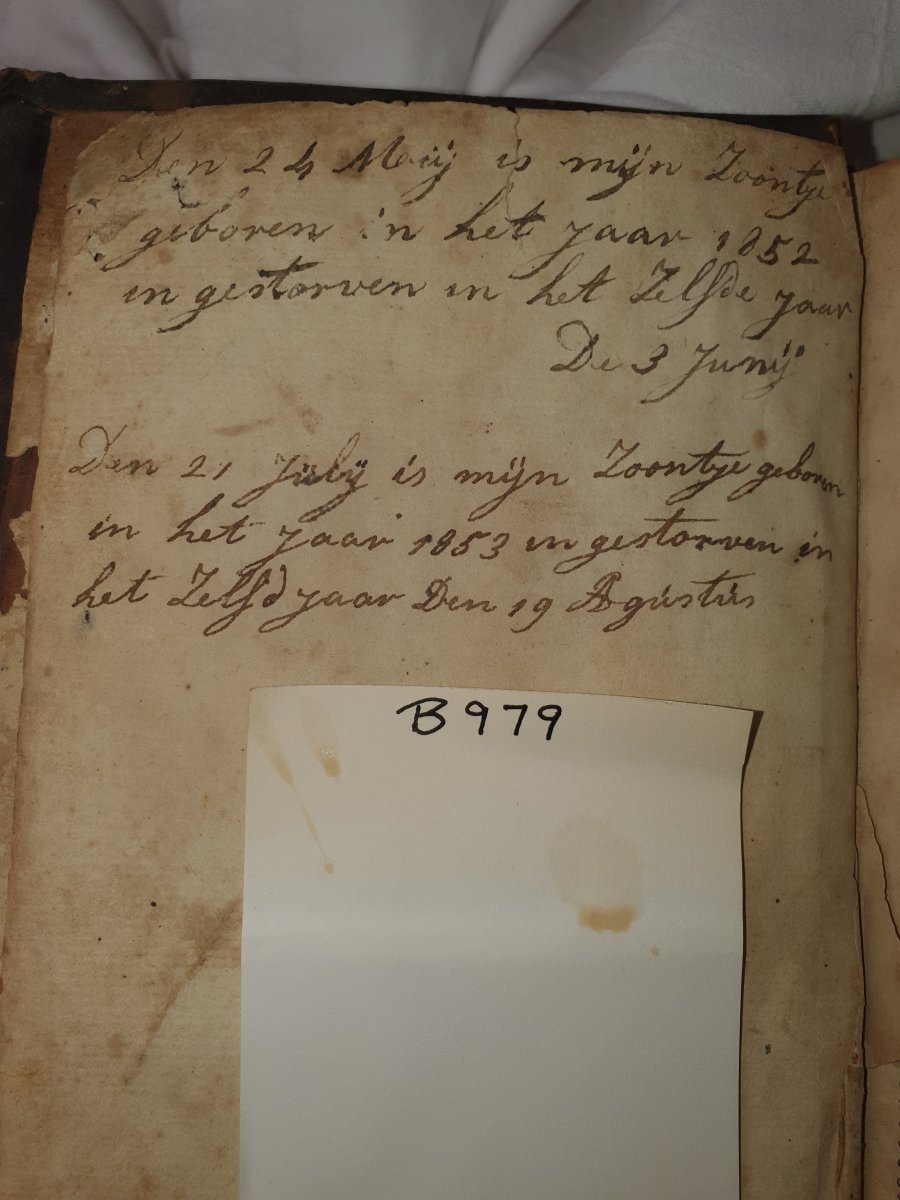 Den 24 Maij is mijn Zoontje
geboren in het jaar 1852
in gestorven in het Zelfde jaar
De 3 Junij
Den 21 Julij is mijn Zoontje geboren
in het jaar 1853 in gestorven in
het Zelfd jaar Den 19 Agustus
B979